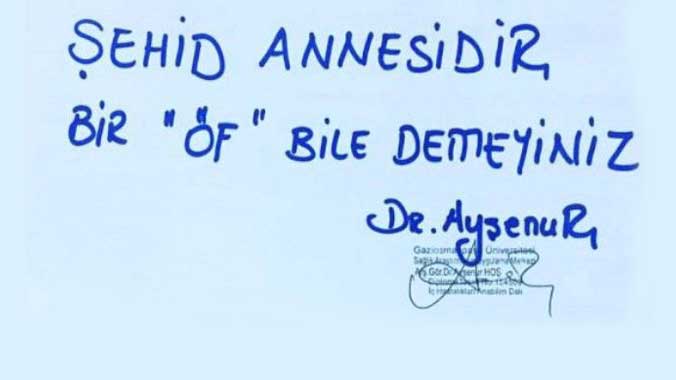 ŞEHİD ANNESİDİR
BİR "ÖF" BİLE DEMEYİNİZ
Dr. Ayşenur
Gaziosmanpaşa Üniversitesi
Sağlık Araştırma Uygulama Merkezi
Arş.Gör.Dr.Ayşenur HOŞ
İç Hastalıkları Anabilim Dalı